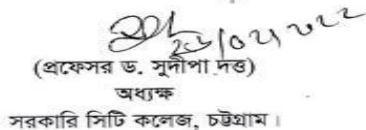 ২৬/০২/২০২২
(প্রফেসর ড. সুদীপা দত্ত)
অধ্যক্ষ
সরকারি সিটি কলেজ, চট্টগ্রাম।